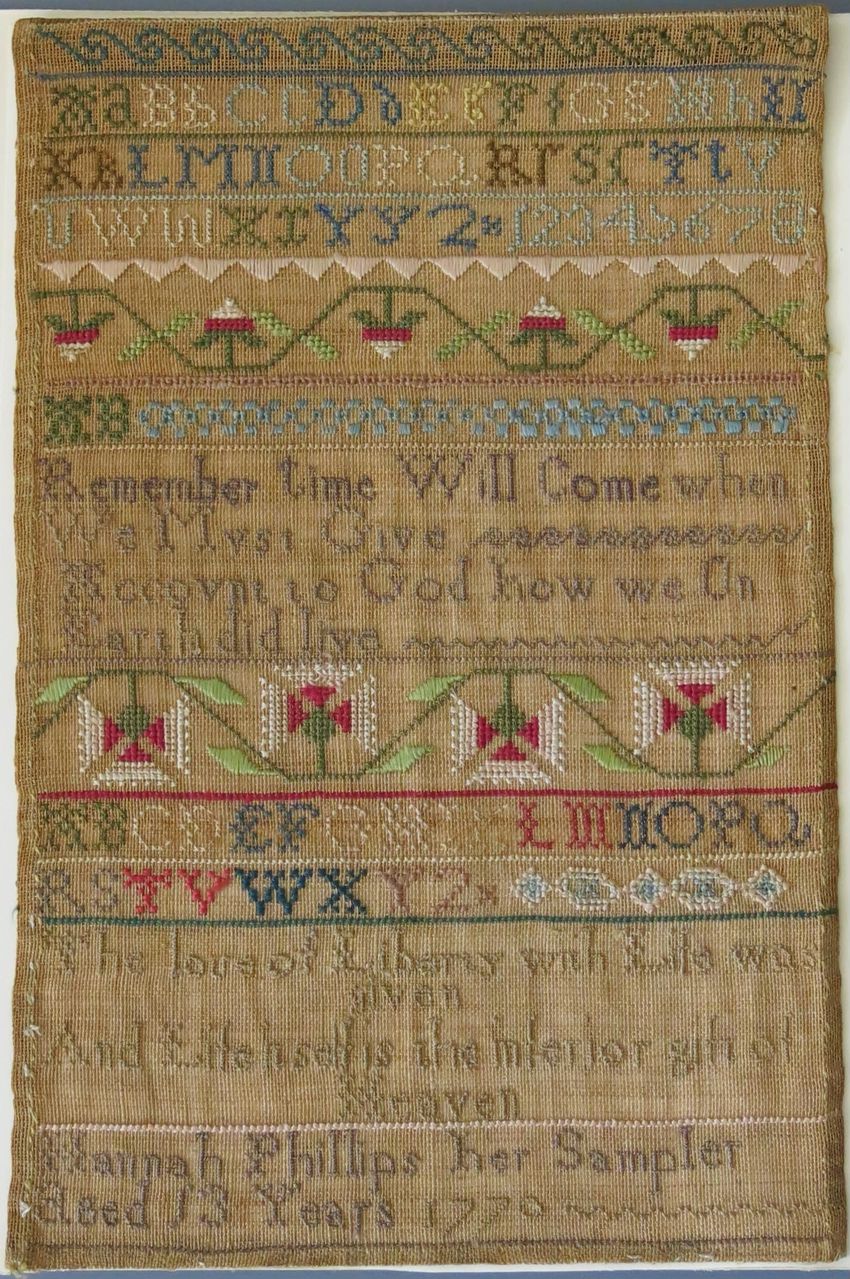 Aa Bb Cc Dd Ee Ff Gg Hh II
Kk L M N O O P Q R r S s T t V
U W W X x Y y Z & 1 2 3 4 5 6 7 8
A B
Remember time Will Come when
We Mvst Give
Accovnt to God how we On
Earth did live
A B C D E F G H I K L M N O P Q
R S T V W X Y Z &
The love of Liberty with Life was
given
And Life itself is the inferior gift of
Heaven
Hannah Phillips her Sampler
Aged 13 Years 1770